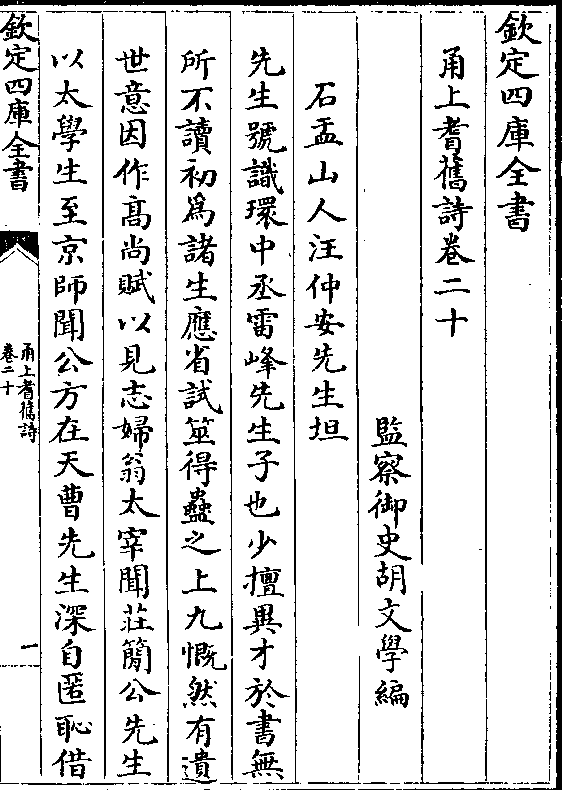 欽定四庫全書
甬上耆舊詩卷二十
監察御史胡文學編
石盂山人汪仲安先生坦
先生號識環中丞雷峰先生子也少擅異才於書無
所不讀初為諸生應省試筮得蠱之上九慨然有遺
世意因作高尚賦以見志婦翁太宰聞莊簡公先生
以太學生至京師聞公方在天曹先生深自匿恥借
欽定四庫全書
甬上耆舊詩
卷二十
一